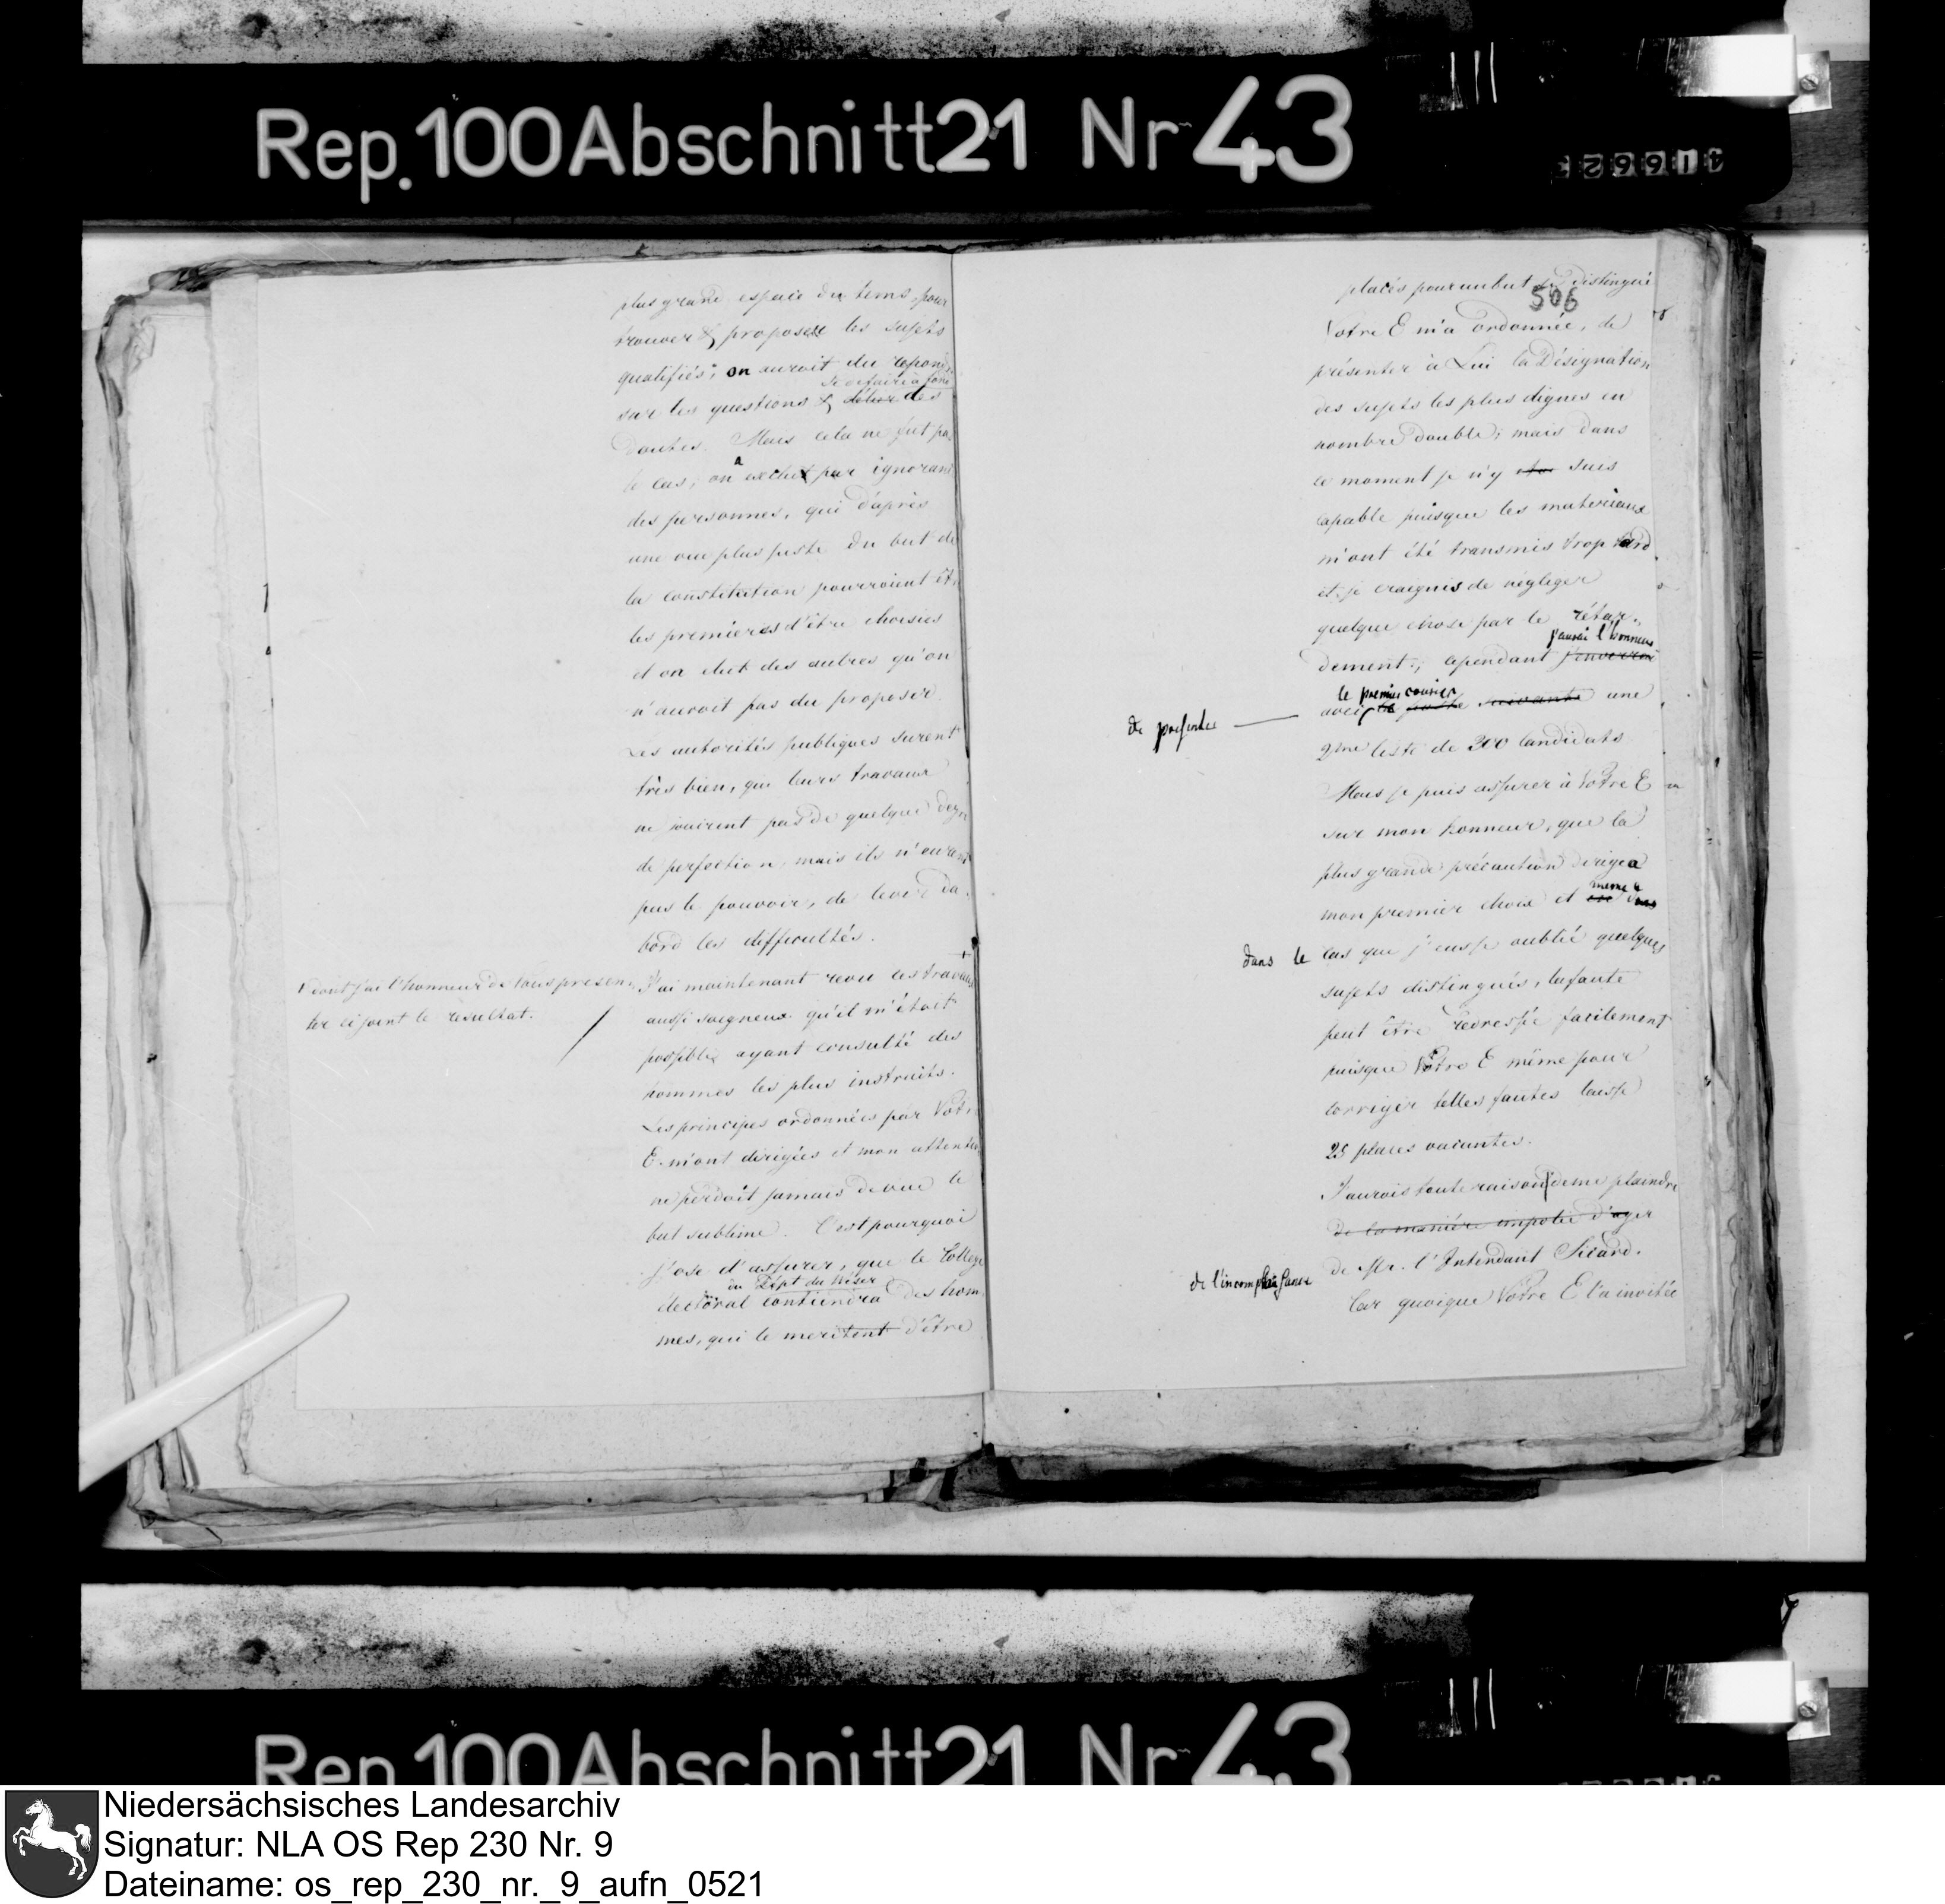 Rep. 100 Abschnitt 21 Nr 43
plus grand espace du tems, pour
trouver & proposer les sujets
qualifiés; on auroit du repond
se defaire à fond
sur les questions & des
Doutes. Mais cela ne fut pas
le cas; on a exclut par ignoran
des personnes, qui d'après
une vue plus juste du but de
la constitution pourroient êt
les premieres d'être choisies
et on elut des autres qu'on
n'auroit pas du proposer.
Les autorités publiques surent
très bien, que leurs travaux
ne jouirent pas de quelque degré
de perfection, mais ils n'eurent
pas le pouvoir, de lever d'a
bord les difficultés.
J'ai maintenant revu les travaux
dont j'ai l'honneur de Vous presen-
ter ci joint le resultat.
aussi soigneux qu'il m'étoit
possible, ayant consulté des
hommes les plus instruits.
Les principes ordonnées par Votre
E. m'ont dirigées et mon attention
ne perdoit jamais de vue le
but sublime. C'est pourquoi
j'ose d'assurer, que le Collège
du Dépt du Wéser
électoral contiendra des hom
mes, qui le meritent d'être
506
placés pour un but si distingué
Votre E m'a ordonnée, de
présenter à Lui la Désignation
des sujets les plus dignes en
nombre double; mais dans
le moment je n'y suis
capable puisque les materieaux
m'ont été transmis trop tard
et je craignis de négliger
quelque chose par le rétar-
j'aurai l'honneur
dement; cependant j'enverrai
de presenter
le premier courier
avec la poste suivante une
2me liste de 300 Candidats
Mais je puis assurer à Votre E
sur mon honneur, que la
plus grande précaution dirigea
même
mon premier choix et
dans le cas que j'eusse oublié quelques
sujets distingués, la faute
peut être redressée facilement
puisque Votre E même pour
corriger telles fautes laisse
25 places vacantes.
J'aurois toute raison de me plaindre
de la manière impolie d'agir
de l'incomplaisance
de Mr. l'Intendant Sicard.
Car quoique Votre E l'a invitée
Rep. 100 Abschnitt 21 Nr 43
Niedersächsisches Landesarchiv
Signatur: NLA OS Rep 230 Nr. 9
Dateiname: os_rep_230_nr._9_aufn_0521